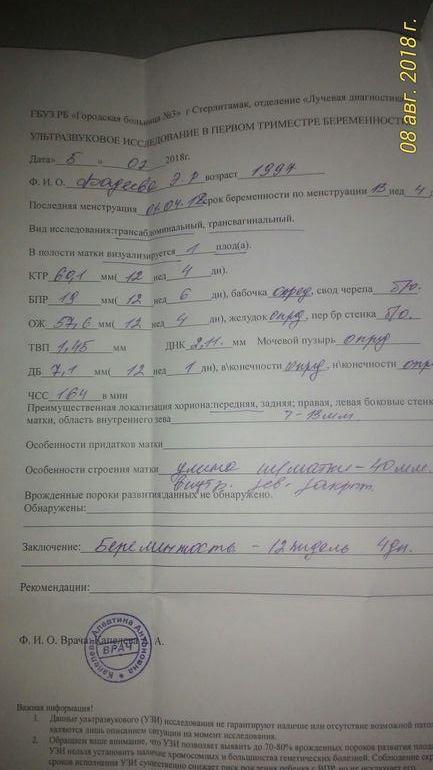 08 авг. 2018 г.
ГБУЗ РБ «Городская больница №3» г Стерлитамак, отделение «Лучевая диагностика
УЛЬТРАЗВУКОВОЕ ИССЛЕДОВАНИЕ В ПЕРВОМ ТРИМЕСТРЕ БЕРЕМЕННОСТИ
Дата» 5 » 07 2018г.
Ф. И. О. Э. Р возраст 1997
Последняя менструация 06.04.18 срок беременности по менструации 13 нед 4
Вид исследования: трансабдоминальный, трансвагинальный.
В полости матки визуализируется 1 плод(а).
КТР 60,1 мм( 12 нед 4 дн).
БПР 19 мм( 12 нед 6 дн), бабочка опред, свод черепа б/о.
ОЖ 57,6 мм( 12 нед 4 дн), желудок опрд, пер бр стенка б/о.
ТВП 1,45 мм ДНК 2,11 мм Мочевой пузырь опрд
ДБ 7,1 мм( 12 нед 1 дн), в\конечности опрд, н\конечности опр
ЧСС 164 в мин
Преимущественная локализация хориона: передняя, задняя; правая, левая боковые стенк
матки, область внутреннего зева 7-13мм
Особенности придатков матки
Особенности строения матки длина ш/матки - 40мм.
внутр. зев - закрыт.
Врожденные пороки развития: данных не обнаружено.
Обнаружены:
Заключение: Беременность - 12 недель 4дн.
Рекомендации:
Ф. И. О. Врача: Капелева А. А.
Капелева Алевтина Антоновна
ВРАЧ
Важная информация!
1. Данные ультразвукового (УЗИ) исследования не гарантируют наличие или отсутствие возможной патол
являются лишь описанием ситуации на момент исследования.
2. Обращаем ваше внимание, что УЗИ позволяет выявить до 70-80% врожденных пороков развития плода
УЗИ нельзя установить наличие хромосомных и большинства генетических болезней. Соблюдение
сроков исполнения УЗИ существенно снижает риск рождения ребенка с ВПР, но не исключает его.